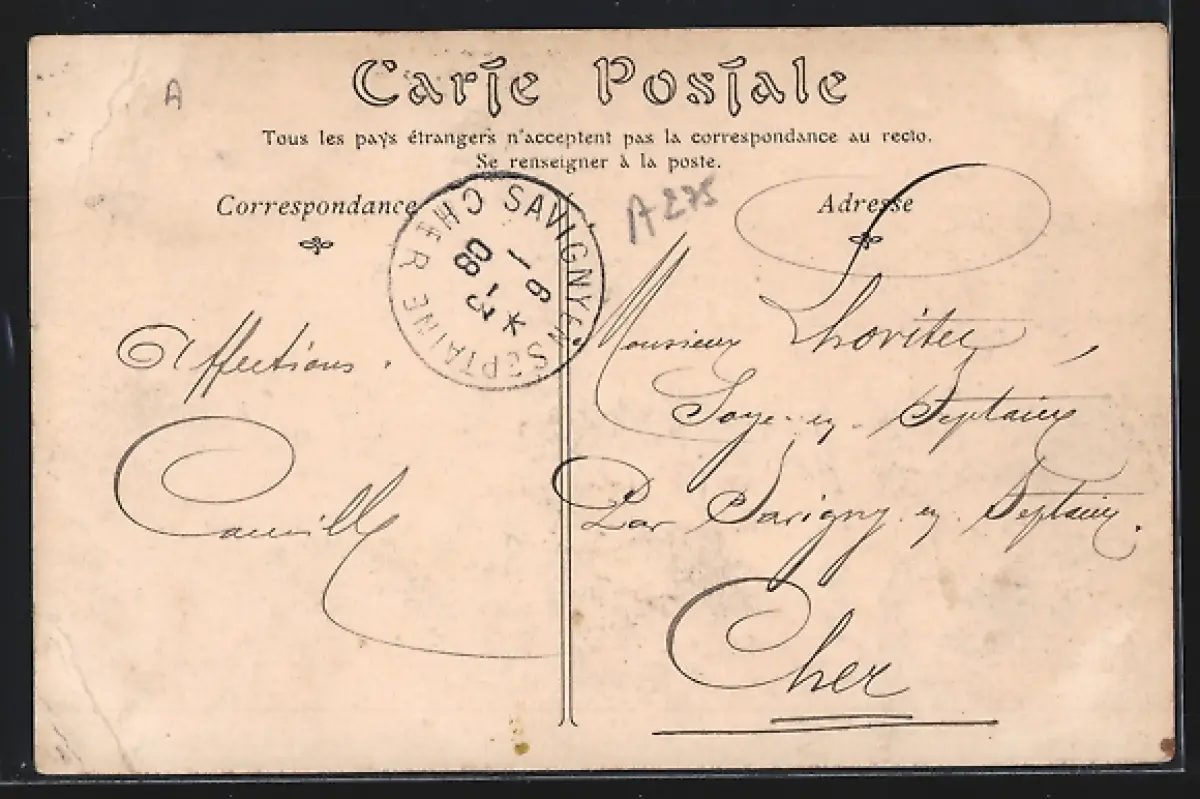 Carte Postale
Tous les pays étrangers n'acceptent pas la correspondance au recto.
Se renseigner à la poste.
A
A 275
Correspondance
Affections.
Camille
SAVIGNY EN SEPTAINE CHER
6 - 1
3 - 08
Adresse
Monsieur Lhoritier,
Soye-en-Septaine
Par Savigny en Septaine.
Cher